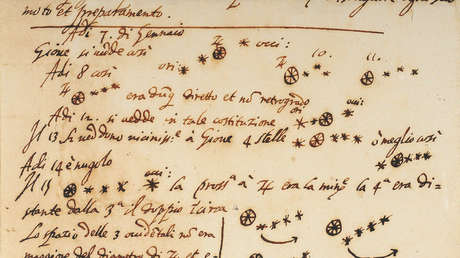 moto Et preparamento.
Adi 7. di Gennaio
Gione si vedde così ♃ * occi:
Adi 8 così ori: ♃ 10. 11.
♃ era dũq diretto et nõ retrogrado
Adi 12. si vedde in tale costituzione ori occi:
Il 13 si veddono vicinissᵉ à Gioue 4 stelle ò meglio così
Adi 14 è nugolo
Il 15 la prossᵃ à ♃ era la minᵉ la 4ᵃ era di=
stante dalla 3ᵃ il doppio
Lo spazio delle 3 occidẽtali nõ era
maggiore del diametro di ♃ et e=